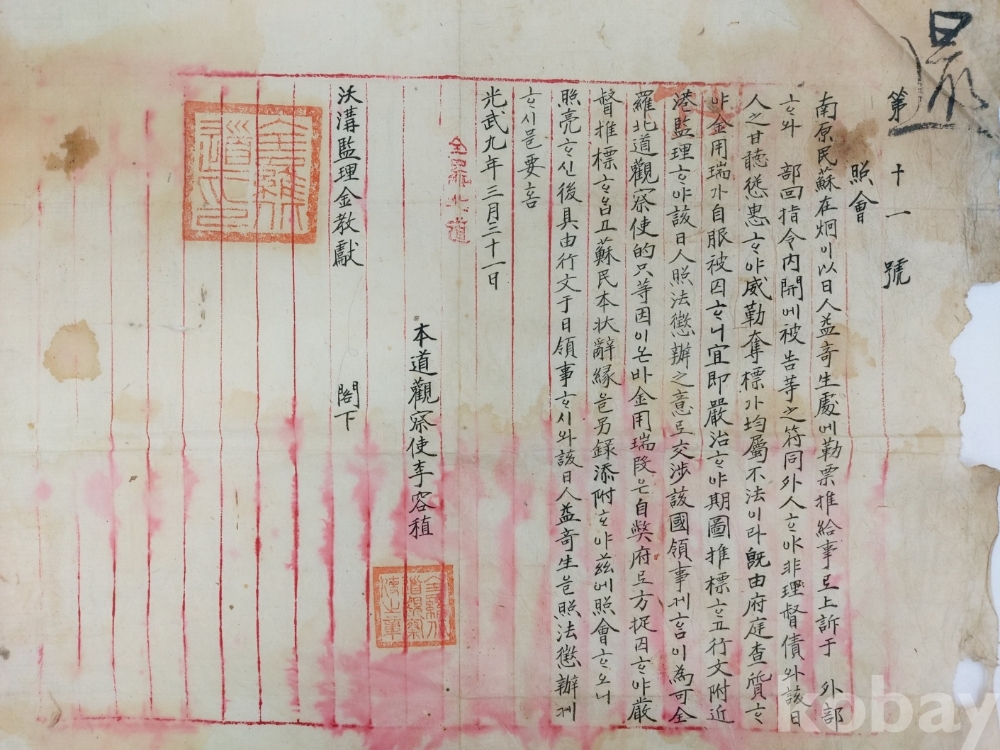 還
第十一號
照會
南原民蘇在炯이以日人益奇生處에勒票推給事로上訴于 外部
ᄒᆞ와 部回指令內開에被告等之符同外人ᄒᆞ야非理督債와該日
人之甘聽慫恿ᄒᆞ야威勒奪標가均屬不法이라旣由府庭査質ᄒᆞ
야金用瑞가自服被囚ᄒᆞ니宜卽嚴治ᄒᆞ야期圖推標ᄒᆞ고行文附近
港監理ᄒᆞ야該日人照法懲辦之意로交涉該國領事케ᄒᆞᆷ이爲可全
羅北道觀察使的只等因이온바金用瑞段은自弊府로方捉囚ᄒᆞ야嚴
督推標ᄒᆞ옵고蘇民本狀辭緣을另錄添附ᄒᆞ야玆에照會ᄒᆞ오니
照亮ᄒᆞ신後具由行文于日領事ᄒᆞ시와該日人益奇生을照法懲辦케
ᄒᆞ시믈要ᄒᆞᆷ
光武九年三月三十一日
全羅北道
本道觀察使李容稙
沃溝監理金敎獻 閣下
全羅北道之印
全羅北道觀察使之章
kobay